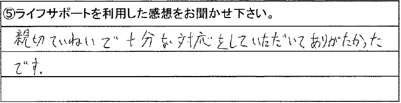 ⑤ライフサポートを利用した感想をお聞かせ下さい。
親切ていねいで十分な対応をしていただいてありがたかった
です.